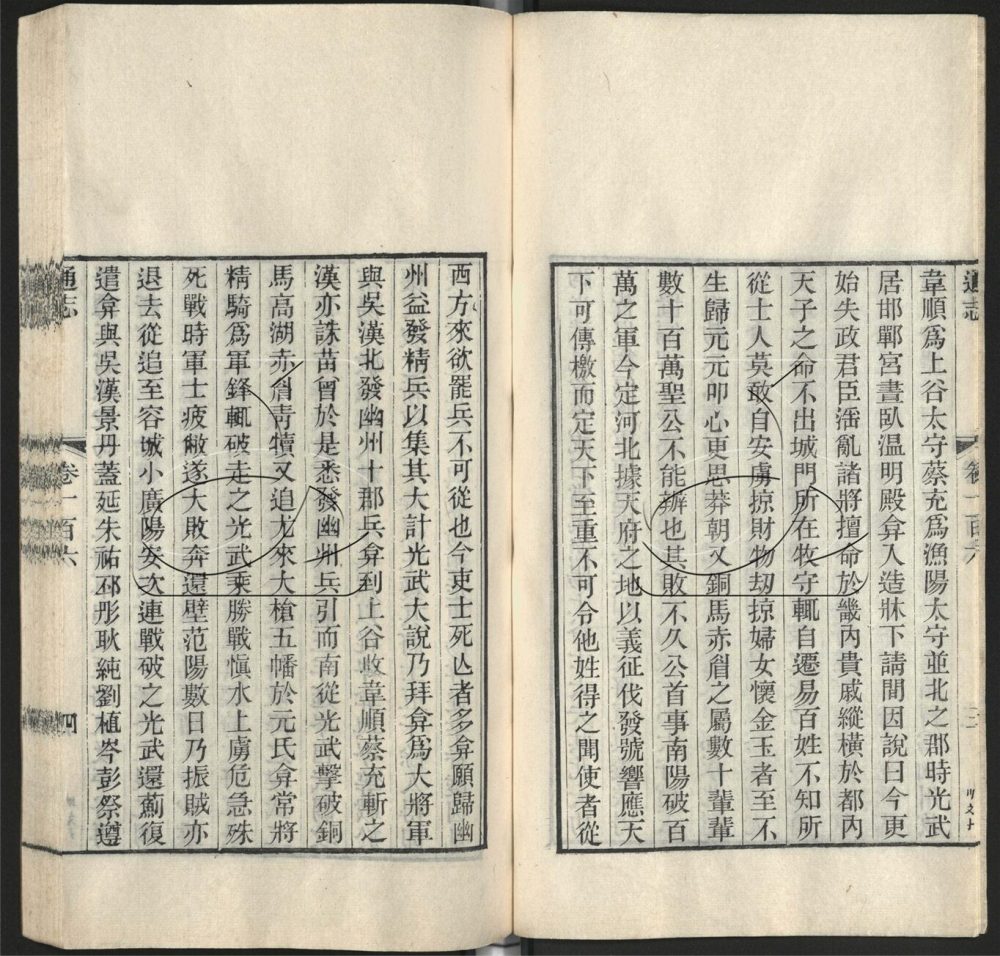 通志
韋順爲上谷太守蔡充爲漁陽太守並北之郡時光武
居邯鄲宮晝臥温明殿弇入造牀下請間因說曰今更
始失政君臣淫亂諸將擅命於畿內貴戚縱橫於都內
天子之命不出城門所在牧守輒自遷易百姓不知所
從士人莫敢自安虜掠財物刧掠婦女懷金玉者至不
生歸元元叩心更思莽朝又銅馬赤眉之屬數十輩輩
數十百萬聖公不能辦也其敗不久公首事南陽破百
萬之軍今定河北據天府之地以義征伐發號響應天
下可傳檄而定天下至重不可令他姓得之聞使者從
西方來欲罷兵不可從也今吏士死亾者多弇願歸幽
州益發精兵以集其大計光武大說乃拜弇爲大將軍
與吳漢北發幽州十郡兵弇到上谷收韋順蔡充斬之
漢亦誅苗曾於是悉發幽州兵引而南從光武擊破銅
馬高湖赤眉靑犢又追尤來大槍五幡於元氏弇常將
精騎爲軍鋒輒破走之光武乘勝戰愼水上虜危急殊
死戰時軍士疲敝遂大敗奔還壁范陽數日乃振賊亦
退去從追至容城小廣陽安次連戰破之光武還薊復
遣弇與吳漢景丹蓋延朱祐邳彤耿純劉植岑彭祭遵
通志
卷一百六
四